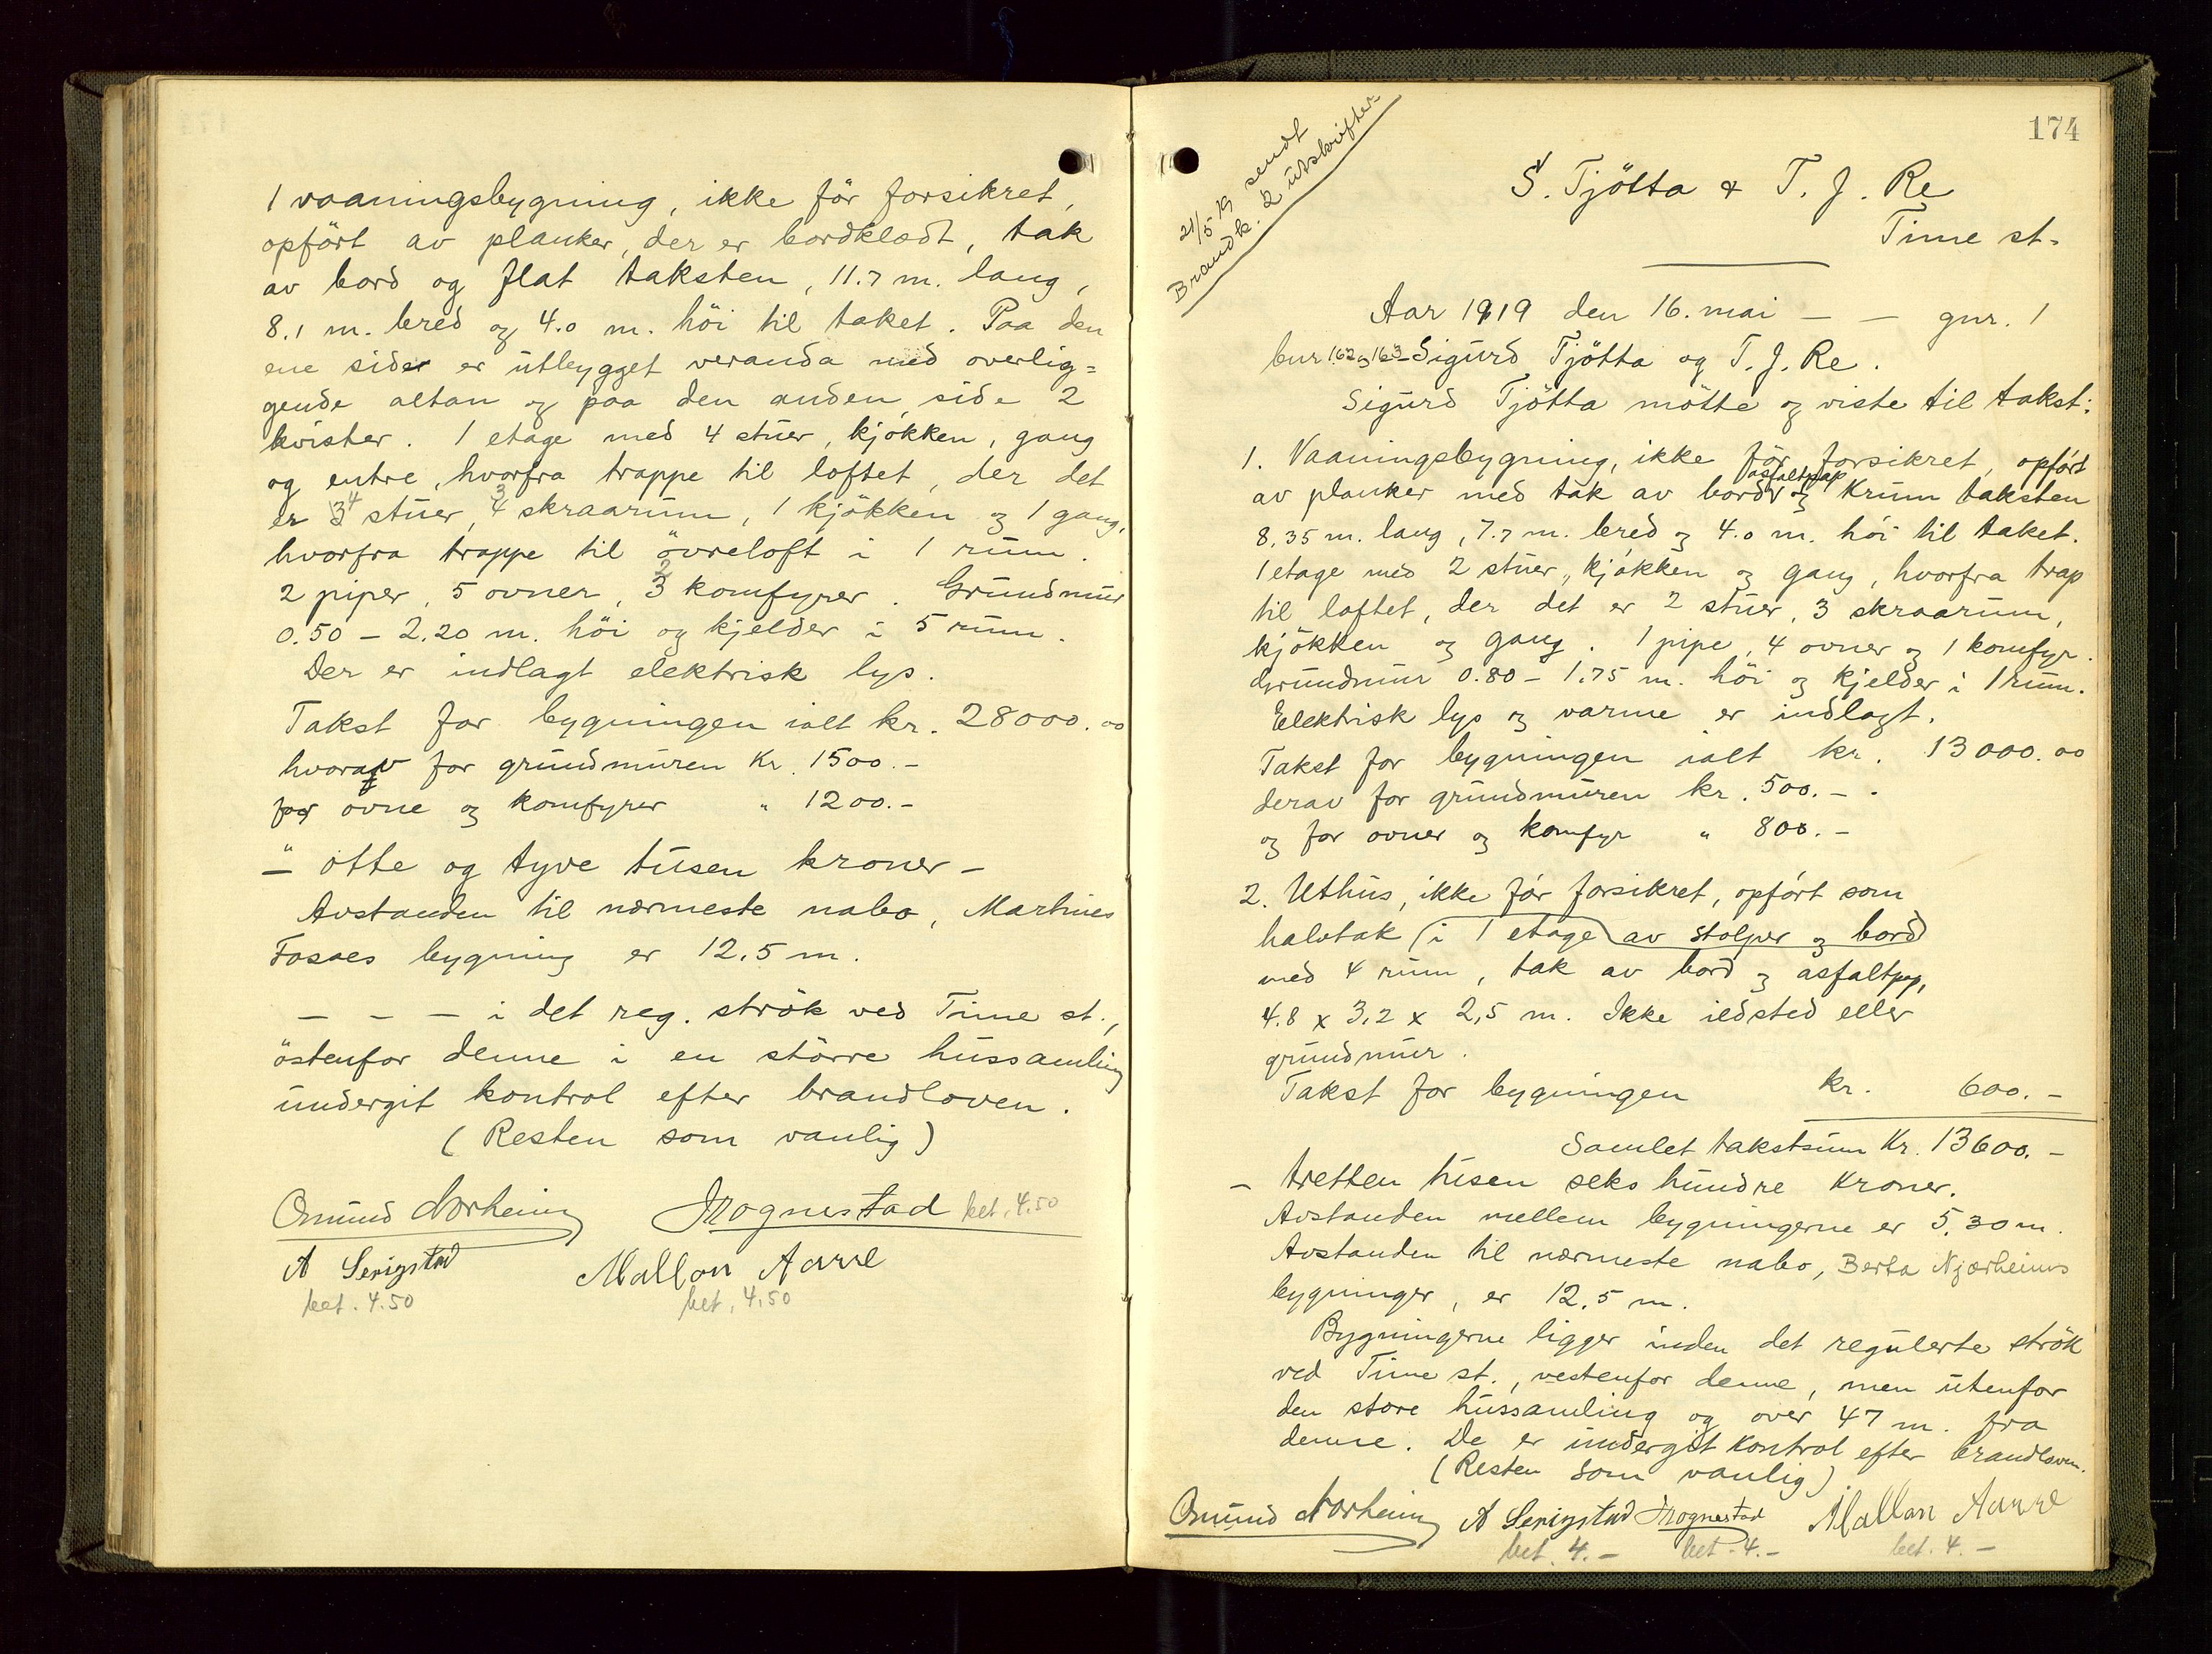 1 vaaningsbygning, ikke för forsikret,
opfört av planker, der er bordklædt, tak
av bord og flat taksten, 11.7 m. lang,
8.1 m. bred og 4.0 m. höi til taket. Paa den
ene side er utbygget veranda med overlig=
gende altan og paa den anden side 2
kvister. 1 etage med 4 stuer, kjøkken, gang
og entre, hvorfra trappe til loftet, der det
er 4 stuer, 3 skraarum, 1 kjökken og 1 gang,
hvorfra trappe til övreloft i 1 rum.
2 piper, 5 ovner, 2 komfyrer. Grundmur
0.50 - 2.20 m. höi og kjelder i 5 rum.
Der er indlagt elektrisk lys.
Takst for bygningen ialt kr. 28000.00
hvorav for grundmuren Kr. 1500.-
for ovne og komfyrer " 1200.-
- otte og tyve tusen kroner -
Avstanden til nærmeste nabo, Martines
Fosaes bygning er 12.5 m.
- - - i det reg. strök ved Time st.,
östenfor denne i en större hussamling
undergit kontrol efter brandloven.
(Resten som vanlig)
Omund Norheim Mognestad bet. 4.50
A Serigstad Mallon Aarre
bet. 4.50 bet. 4.50
174
21/5 19 sendt
Brandk. 2 utskrifter
S. Tjötta & T. J. Re
Time st.
Aar 1919 den 16. mai - - gnr. 1
bnr 162 og 163 Sigurd Tjötta og T. J. Re.
Sigurd Tjötta mötte og viste til takst:
1. Vaaningsbygning, ikke för forsikret, opfört
av planker med tak av bord, asfaltpap og Krum taksten
8,35 m. lang, 7.7 m. bred og 4.0 m. höi til taket.
1 etage med 2 stuer, kjökken og gang, hvorfra trap
til loftet, der det er 2 stuer, 3 skraarum,
kjökken og gang. 1 pipe, 4 ovner og 1 komfyr.
Grundmur 0.80 - 1.75 m. höi og kjelder i 1 rum.
Elektrisk lys og varme er indlagt.
Takst for bygningen ialt kr. 13000.00
derav for grundmuren kr. 500.-
og for ovner og komfyr " 800.-
2. Uthus, ikke för forsikret, opfört som
halvtak (i 1 etage) av stolper og bord
med 4 rum, tak av bord og asfaltpap,
4.8 x 3.2 x 2,5 m. Ikke ildsted eller
grundmur.
Takst for bygningen kr. 600.-
Samlet takstsum Kr. 13600.-
- tretten tusen seks hundre Kroner.
Avstanden mellem bygningerne er 5.30 m.
Avstanden til nærmeste nabo, Berta Njærheims
bygninger, er 12.5 m.
Bygningerne ligger inden det regulerte strök
ved Time st., vestenfor denne, men utenfor
den store hussamling og over 47 m. fra
denne. De er undergit Kontrol efter brandloven.
(Resten som vanlig)
Omund Norheim A Serigstad Mognestad Mallon Aarre
bet. 4.- bet. 4.- bet. 4.-